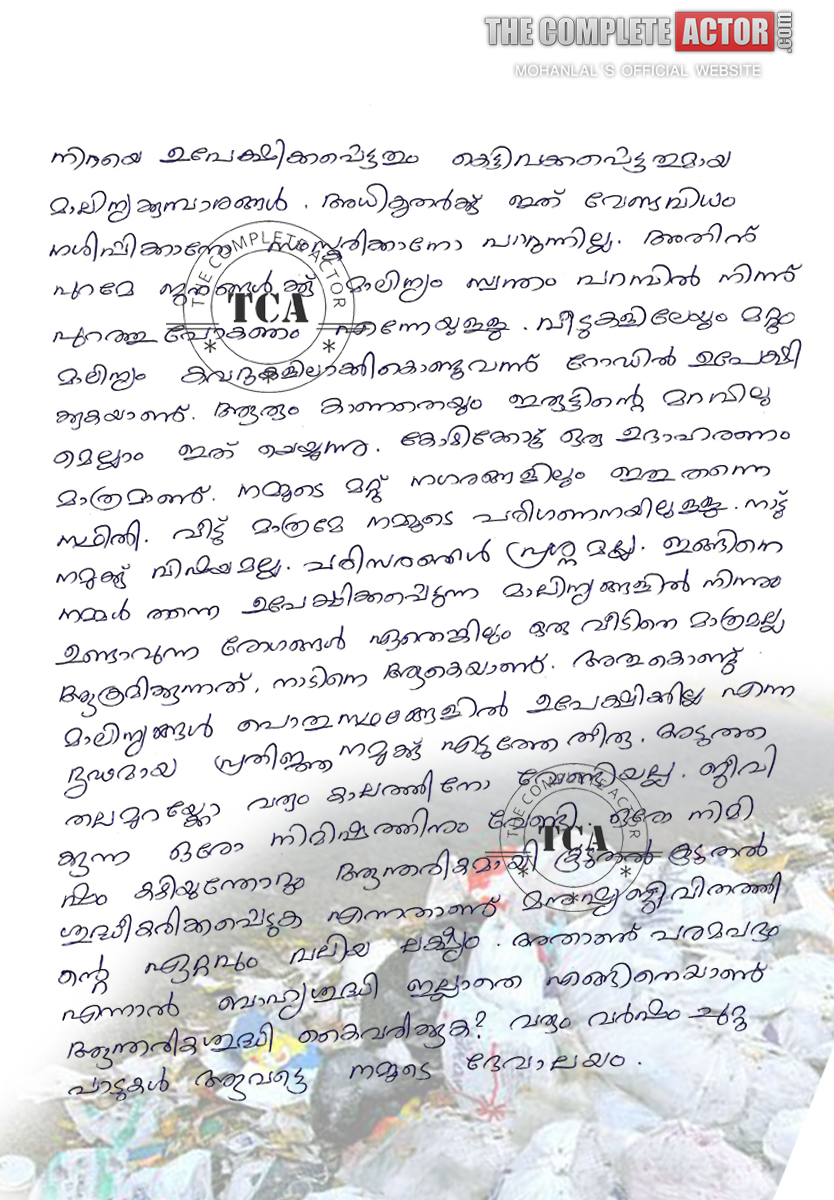 THE COMPLETE ACTOR.com
MOHANLAL'S OFFICIAL WEBSITE
നിറയെ ഉപേക്ഷിക്കപ്പെട്ടതും കെട്ടിവക്കപ്പെട്ടതുമായ
മാലിന്യക്കുമ്പാരങ്ങൾ. അധികൃതർക്ക് ഇത് വേണ്ടവിധം
നശിപ്പിക്കാനോ സംസ്കരിക്കാനോ പറ്റുന്നില്ല. അതിന്
പുറമേ ജനങ്ങൾക്ക് മാലിന്യം സ്വന്തം പറമ്പിൽ നിന്ന്
പുറത്തു പോകണം എന്നേയുള്ളു. വീട്ടുകളിലേയും മറ്റും
മാലിന്യം കവറുകളിലാക്കികൊണ്ടുവന്ന് റോഡിൽ ഉപേക്ഷി
ക്കുകയാണ്. ആരും കാണാതെയും ഇരുട്ടിന്റെ മറവിലു
മെല്ലാം ഇത് ചെയ്യുന്നു. കോഴിക്കോട്ട് ഒരു ഉദാഹരണം
മാത്രമാണ്. നമ്മുടെ മറ്റ് നഗരങ്ങളിലും ഇതു തന്നെ
സ്ഥിതി. വീട്ട് മാത്രമേ നമ്മുടെ പരിഗണനയിലുള്ളു. നാട്ട്
നമുക്ക് വിഷയമല്ല. പരിസരങ്ങൾ പ്രശ്നമല്ല. ഇങ്ങിനെ
നമ്മൾ തന്നെ ഉപേക്ഷിക്കപ്പെടുന്ന മാലിന്യങ്ങളിൽ നിന്നും
ഉണ്ടാവുന്ന രോഗങ്ങൾ ഏതെങ്കിലും ഒരു വീടിനെ മാത്രമല്ല
ആക്രമിക്കുന്നത്, നാടിനെ ആകെയാണ്. അതുകൊണ്ട്
മാലിന്യങ്ങൾ പൊതുസ്ഥലങ്ങളിൽ ഉപേക്ഷിക്കില്ല എന്ന
ദൃഢമായ പ്രതിജ്ഞ നമുക്കു എടുത്തേ തീരു. അടുത്ത
തലമുറയ്ക്കോ വരും കാലത്തിനോ വേണ്ടിയല്ല. ജീവി
ക്കുന്ന ഒരോ നിമിഷത്തിനും വേണ്ടി. ഒരോ നിമി
ഷം കഴിയുന്തോറും ആന്തരികമായി കൂടുതൽ കൂടുതൽ
ശുദ്ധീകരിക്കപ്പെടുക എന്നതാണ് മനുഷ്യജീവിതത്തി
ന്റെ ഏറ്റവും വലിയ ലക്ഷ്യം. അതാണ് പരമപദവും
എന്നാൽ ബാഹ്യശുദ്ധി ഇല്ലാതെ എങ്ങിനെയാണ്
ആന്തരികശുദ്ധി കൈവരിക്കുക? വരും വർഷം ചുറ്റു
പാടുകൾ ആവട്ടെ നമ്മുടെ ദേവാലയം.
THE COMPLETE ACTOR
TCA
THE COMPLETE ACTOR
TCA